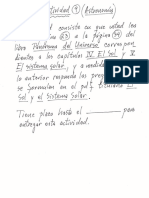 Actividad 4 (Astronomía)
consiste en que usted lea
(23) a la página (94) del
libro Panorama del Universo correspon
dientes a los capítulos IV. El Sol y V
El sistema solar, y a medida
lo anterior responda las preg
se formulan en el pdf titulado El
Sol y el Sistema Solar.
Tiene plazo hasta el ________ para
entregar esta actividad.